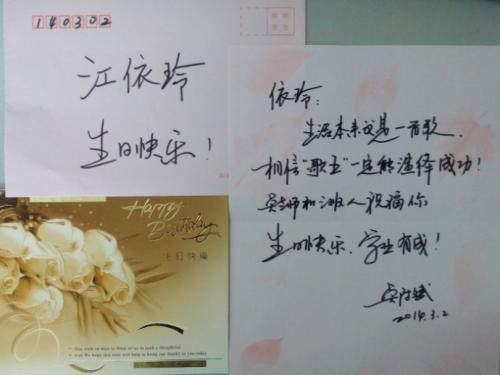 140302
江依玲
生日快乐!
Happy
Birthday
生日快樂
依玲:
生活本来就是一首歌,
相信"歌王"一定能演绎成功!
吴老师和人祝福你
生日快乐、学业有成!
2014.3.2